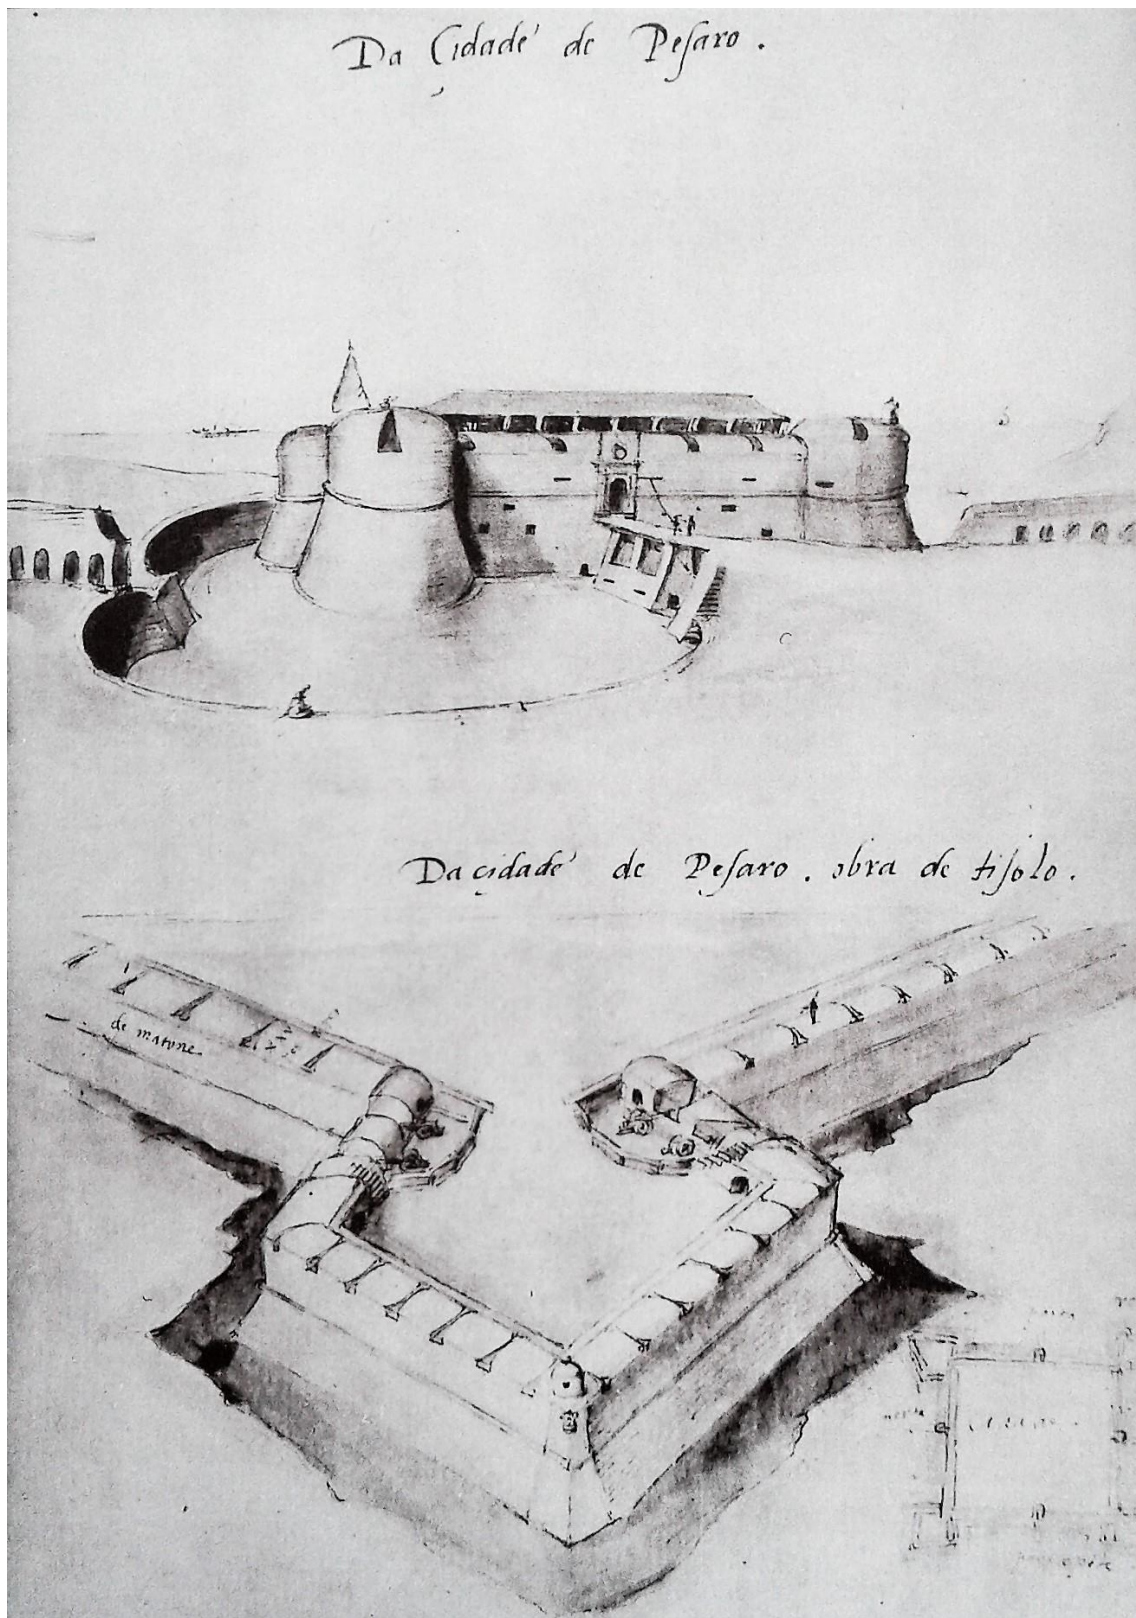 Da Çidade' de Pesaro .
Da çidade' de Pesaro . obra de tijolo .
de matone